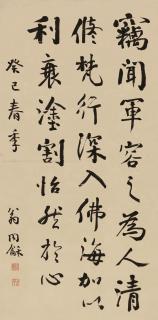 竊聞軍容之為人清
修梵行深入佛海加以
利衰塗割怡然於心
癸巳春季
翁同龢